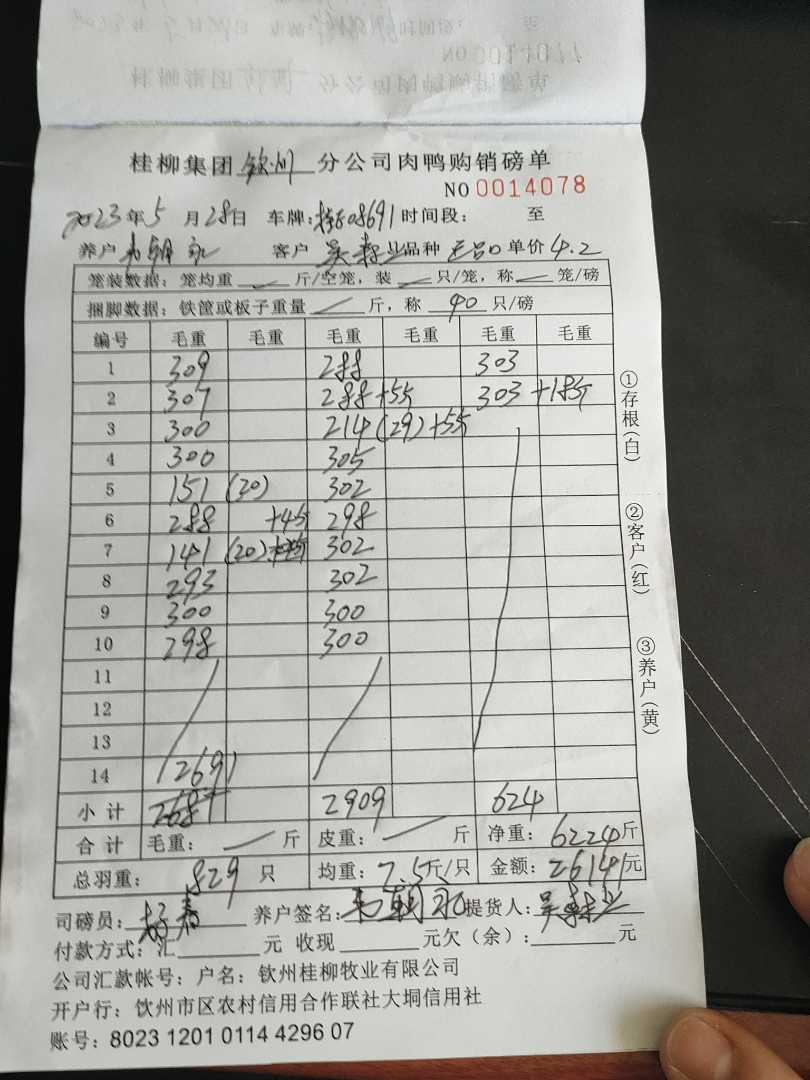 桂柳集团 钦州 分公司肉鸭购销磅单
NO 0014078
2023年5月28日 车牌: 08691 时间段: 至
养户 客户 品种 单价 4.2
笼装数据: 笼均重 斤/空笼, 装 只/笼, 称 笼/磅
捆脚数据: 铁筐或板子重量 斤, 称 40 只/磅
编号 毛重 毛重 毛重 毛重 毛重 毛重
1 309 288 303
2 307 288 +5斤 303 +18斤
3 300 214 (29) +5斤
4 300 305
5 151 (20) 302
6 288 +4斤 298
7 141 (20) 302
8 293 302
9 300 300
10 298 300
11
12
13
14 2691
小计 2687 2909 624
合计 毛重: 斤 皮重: 斤 净重: 6224斤
总羽重: 829 只 均重: 7.5斤/只 金额: 26141元
司磅员: 杨春 养户签名: 提货人:
付款方式: 汇 元 收现 元欠(余): 元
公司汇款帐号: 户名: 钦州桂柳牧业有限公司
开户行: 钦州市区农村信用合作联社大垌信用社
账号: 8023 1201 0114 4296 07
①存根(白)
②客户(红)
③养户(黄)